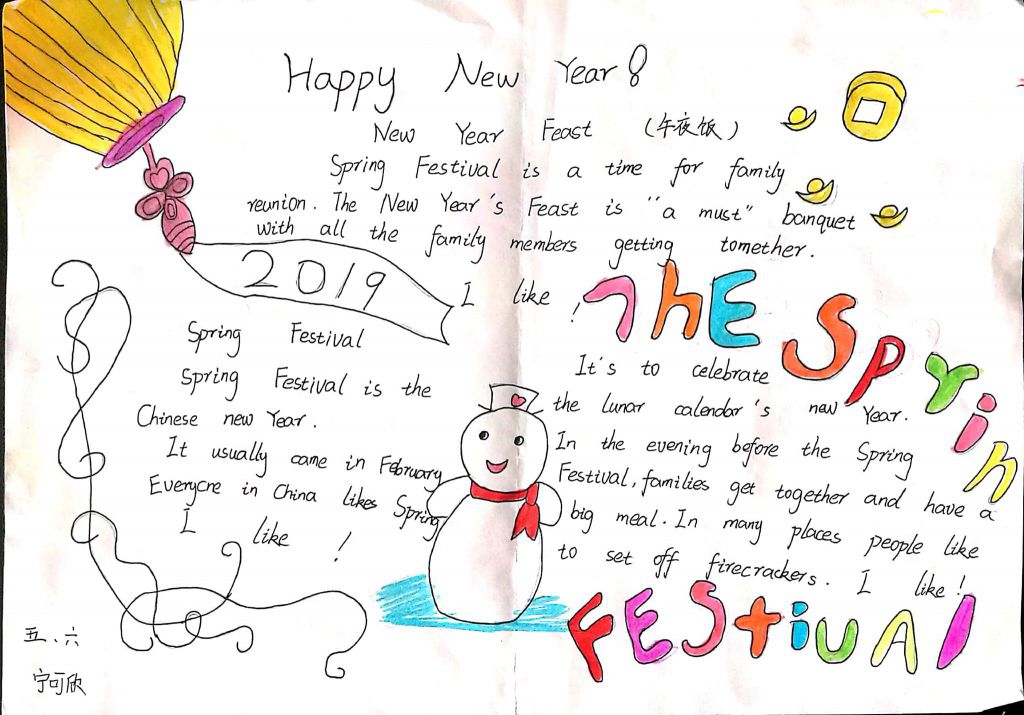 Happy New Year!
New Year Feast (午夜饭)
Spring Festival is a time for family
reunion. The New Year's Feast is "a must" banquet
with all the family members getting tomether.
I like !
2019
The Spring
Spring Festival
Spring Festival is the
Chinese new Year.
It usually came in February
Everycne in China likes Spring
I like !
It's to celebrate
the lunar calendar's new Year.
In the evening before the Spring
Festival, families get together and have a
big meal. In many places people like
to set off firecrackers. I like!
FEStiUAl
五、六
宁可欣